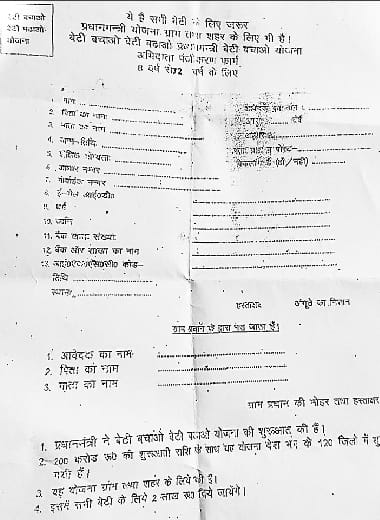 बेटी बचाओ
बेटी पढाओ-
योजना
ये है सभी बेटी के लिए जरूर
प्रधानमन्त्री योजना ग्राम तथा शहर के लिए भी है।
बेटी बचाओ बेटी पढाओ प्रधानमन्त्री बेटी बचाओ योजना
पंजीकरण फार्म
8 वर्ष से 32 वर्ष के लिए
1. नाम
2. पिता का नाम
3. माता का नाम
4. जन्म-तिथि
5. शैक्षिक योग्यता
6. आधार नम्बर
7. मोबाईल नम्बर
8. ई-मेल आई०डी०
9. धर्म
10.
11. बैंक खाता संख्या
12. बैंक और शाखा का नाम
13. आई०एफ०एस०सी० कोड-
तिथि
स्थान
हस्ताक्षर अंगूठे का निशान
ग्राम प्रधान के द्वारा भरा जाता है।
1. आवेदक का नाम
2. पिता का नाम
3. माता का नाम
ग्राम प्रधान की मोहर तथा हस्ताक्षर
1. प्रधानमंत्री ने बेटी बचाओ बेटी पढाओ योजना की शुरूआत की है।
2. 200 करोड रू0 की शुरूआती राशि के साथ यह योजना देश भर के 120 जिलों में
गयी है।
3. यह योजना ग्राम तथा शहर के लिये भी है।
4. इसमें सभी बेटी के लिये 2 लाख रू0 दिये जायेंगे।